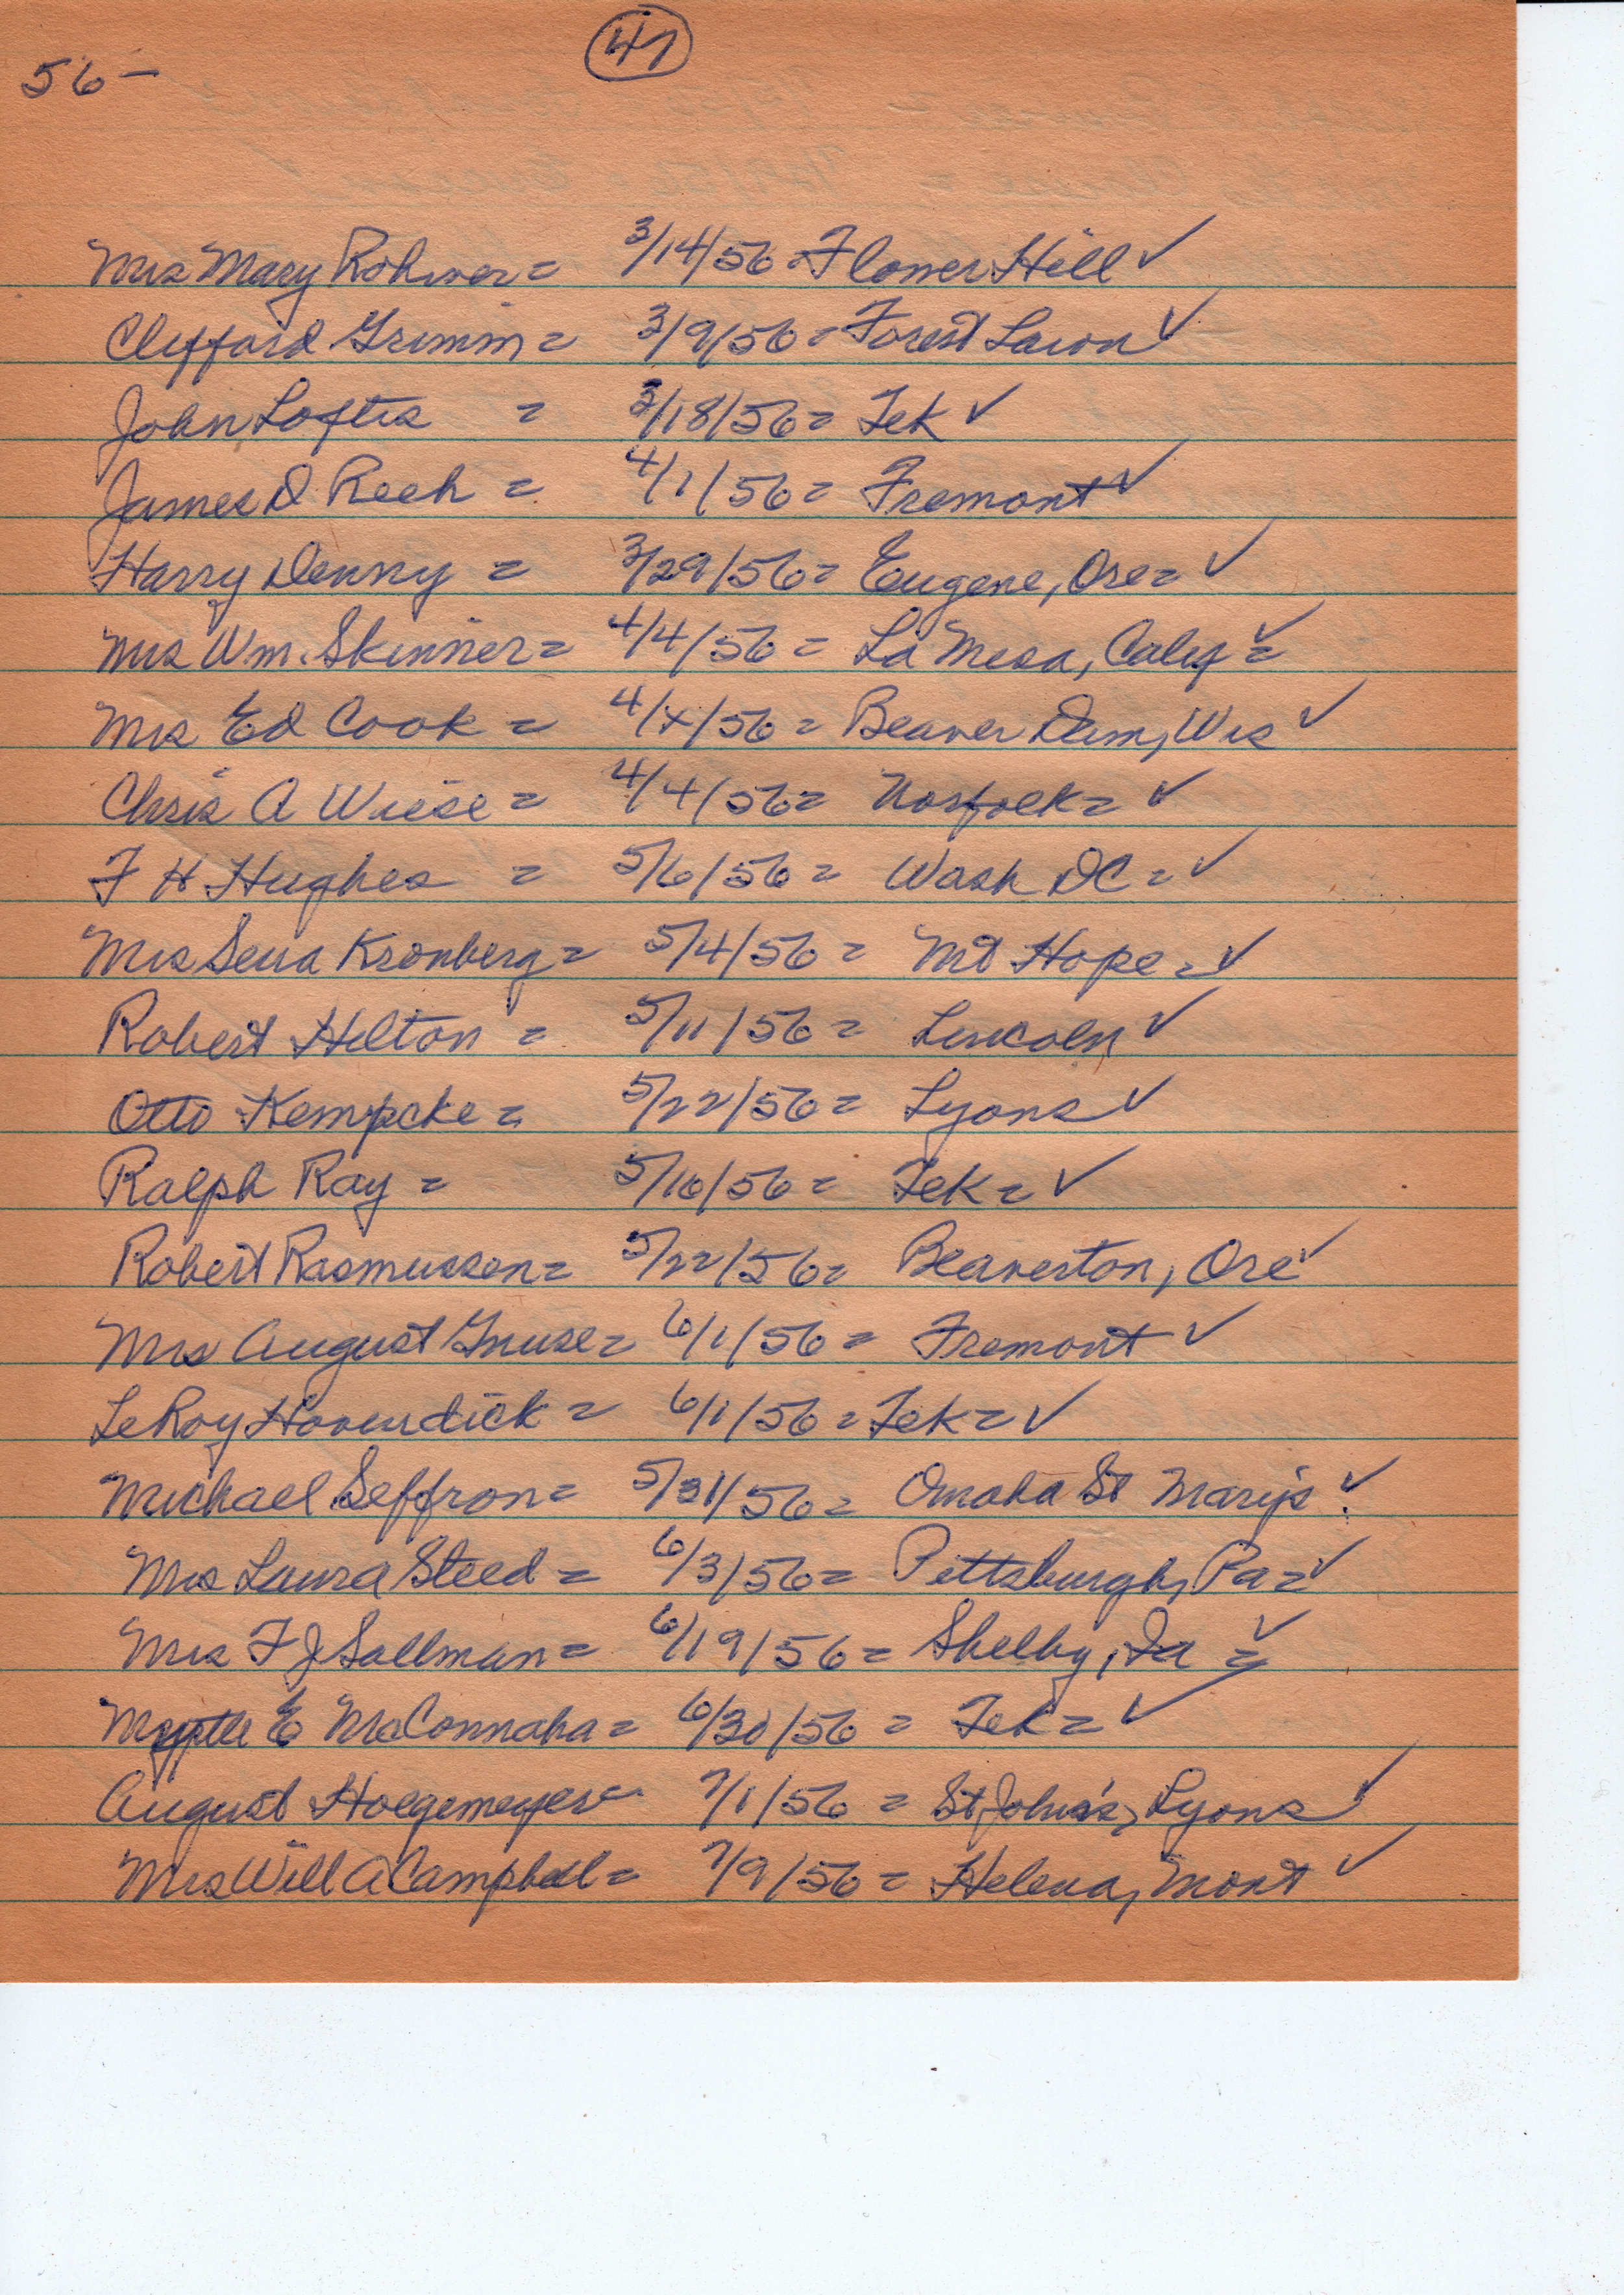 56 —
47
Mrs Mary Rohwer = 3/14/56 = Flower Hill ✓
Clifford Grimm = 3/9/56 = Forest Lawn ✓
John Loftis = 3/18/56 = Tek ✓
James D Reeh = 4/1/56 = Fremont ✓
Harry Denny = 3/29/56 = Eugene, Ore = ✓
Mrs Wm. Skinner = 4/4/56 = La Mesa, Calif = ✓
Mrs Ed Cook = 4/4/56 = Beaver Dam, Wis ✓
Chris A Wiese = 4/4/56 = Norfolk = ✓
F H Hughes = 5/6/56 = Wash DC = ✓
Mrs Sena Kronberg = 5/4/56 = Mt Hope = ✓
Robert Hilton = 5/11/56 = Lincoln ✓
Otto Kempcke = 5/22/56 = Lyons ✓
Ralph Ray = 5/16/56 = Tek = ✓
Robert Rasmussen = 5/22/56 = Beaverton, Ore ✓
Mrs August Gnuse = 6/1/56 = Fremont ✓
LeRoy Hovendick = 6/1/56 = Tek = ✓
Michael Seffron = 5/31/56 = Omaha St Mary's ✓
Mrs Laura Steed = 6/3/56 = Pittsburgh, Pa = ✓
Mrs F J Sallman = 6/19/56 = Shelby, Ia = ✓
E McConnaha = 6/30/56 = Tek = ✓
August Hoegemeyer = 7/1/56 = St John's, Lyons ✓
Mrs Will A Campbell = 7/9/56 = Helena, Mont ✓